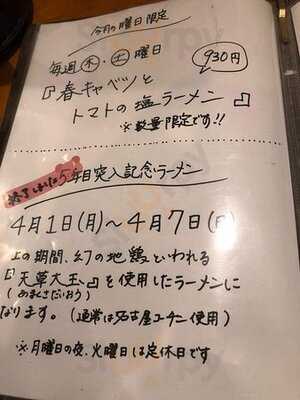 今月の曜日限定
毎週㊍・㊏曜日
930円
『春キャベツと
トマトの塩ラーメン』
※数量限定です!!
終了しました
5年目突入記念ラーメン
4月1日(月)〜4月7日(日)
上の期間、幻の地鶏といわれる
『天草大王』を使用したラーメンに
(あまくさだいおう)
なります。(通常は名古屋コーチン使用)
※月曜日の夜、火曜日は定休日です